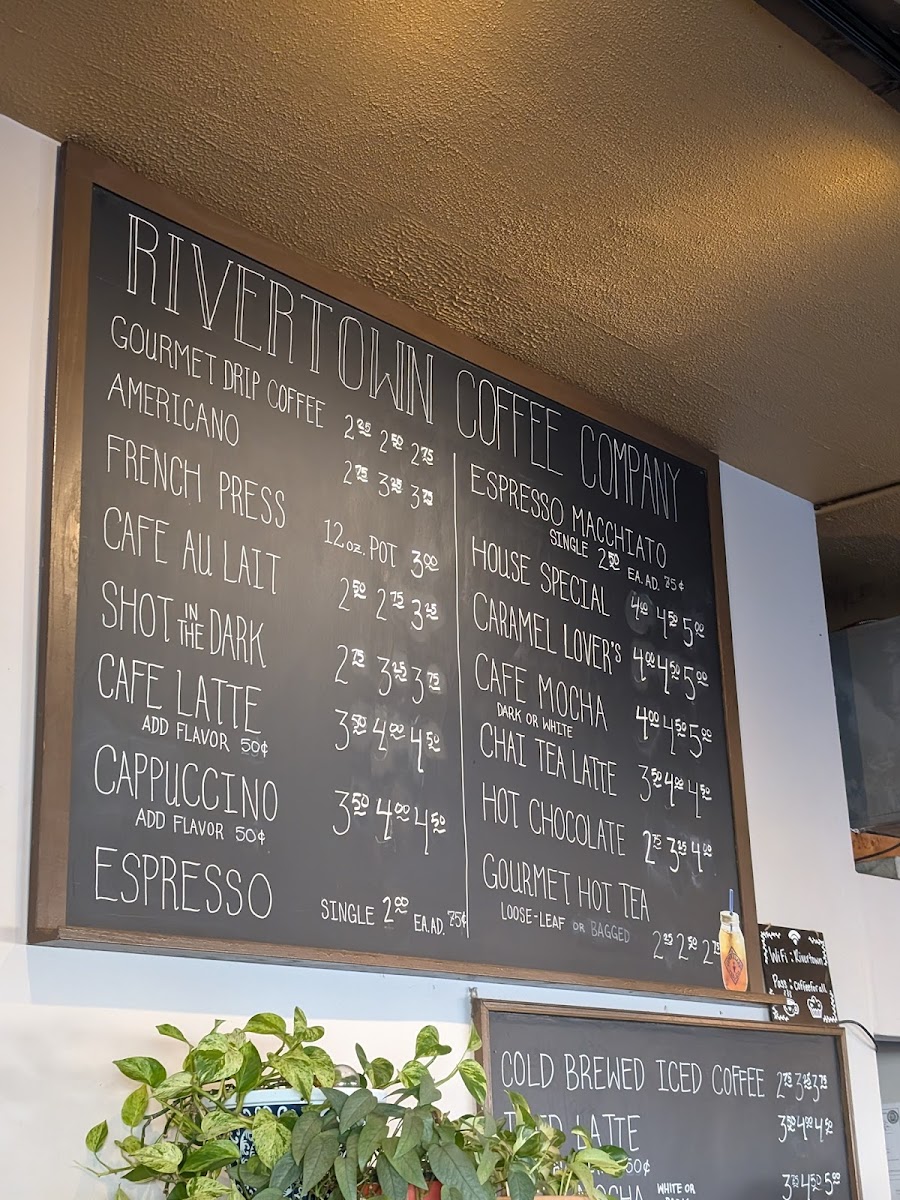 RIVERTOWN COFFEE COMPANY
GOURMET DRIP COFFEE 2.25 2.50 2.75
AMERICANO 2.75 3.25 3.75
FRENCH PRESS 12 oz. POT 3.00
CAFE AU LAIT 2.50 2.75 3.25
SHOT IN THE DARK 2.75 3.25 3.75
CAFE LATTE 3.50 4.00 4.50
ADD FLAVOR 50¢
CAPPUCCINO 3.50 4.00 4.50
ADD FLAVOR 50¢
ESPRESSO SINGLE 2.00 EA. AD. 75¢
ESPRESSO MACCHIATO
SINGLE 2.50 EA. AD. 75¢
HOUSE SPECIAL 4.00 4.50 5.00
CARAMEL LOVER'S 4.00 4.50 5.00
CAFE MOCHA 4.00 4.50 5.00
DARK OR WHITE
CHAI TEA LATTE 3.50 4.00 4.50
HOT CHOCOLATE 2.75 3.25 4.00
GOURMET HOT TEA
LOOSE-LEAF OR BAGGED 2.25 2.50
WiFi : Rivertown
Pass : coffeeforall
COLD BREWED ICED COFFEE 2.75 3.25 3.75
LATTE 3.50 4.00 4.50
50¢
WHITE OR
MOCHA 4.50 5.00